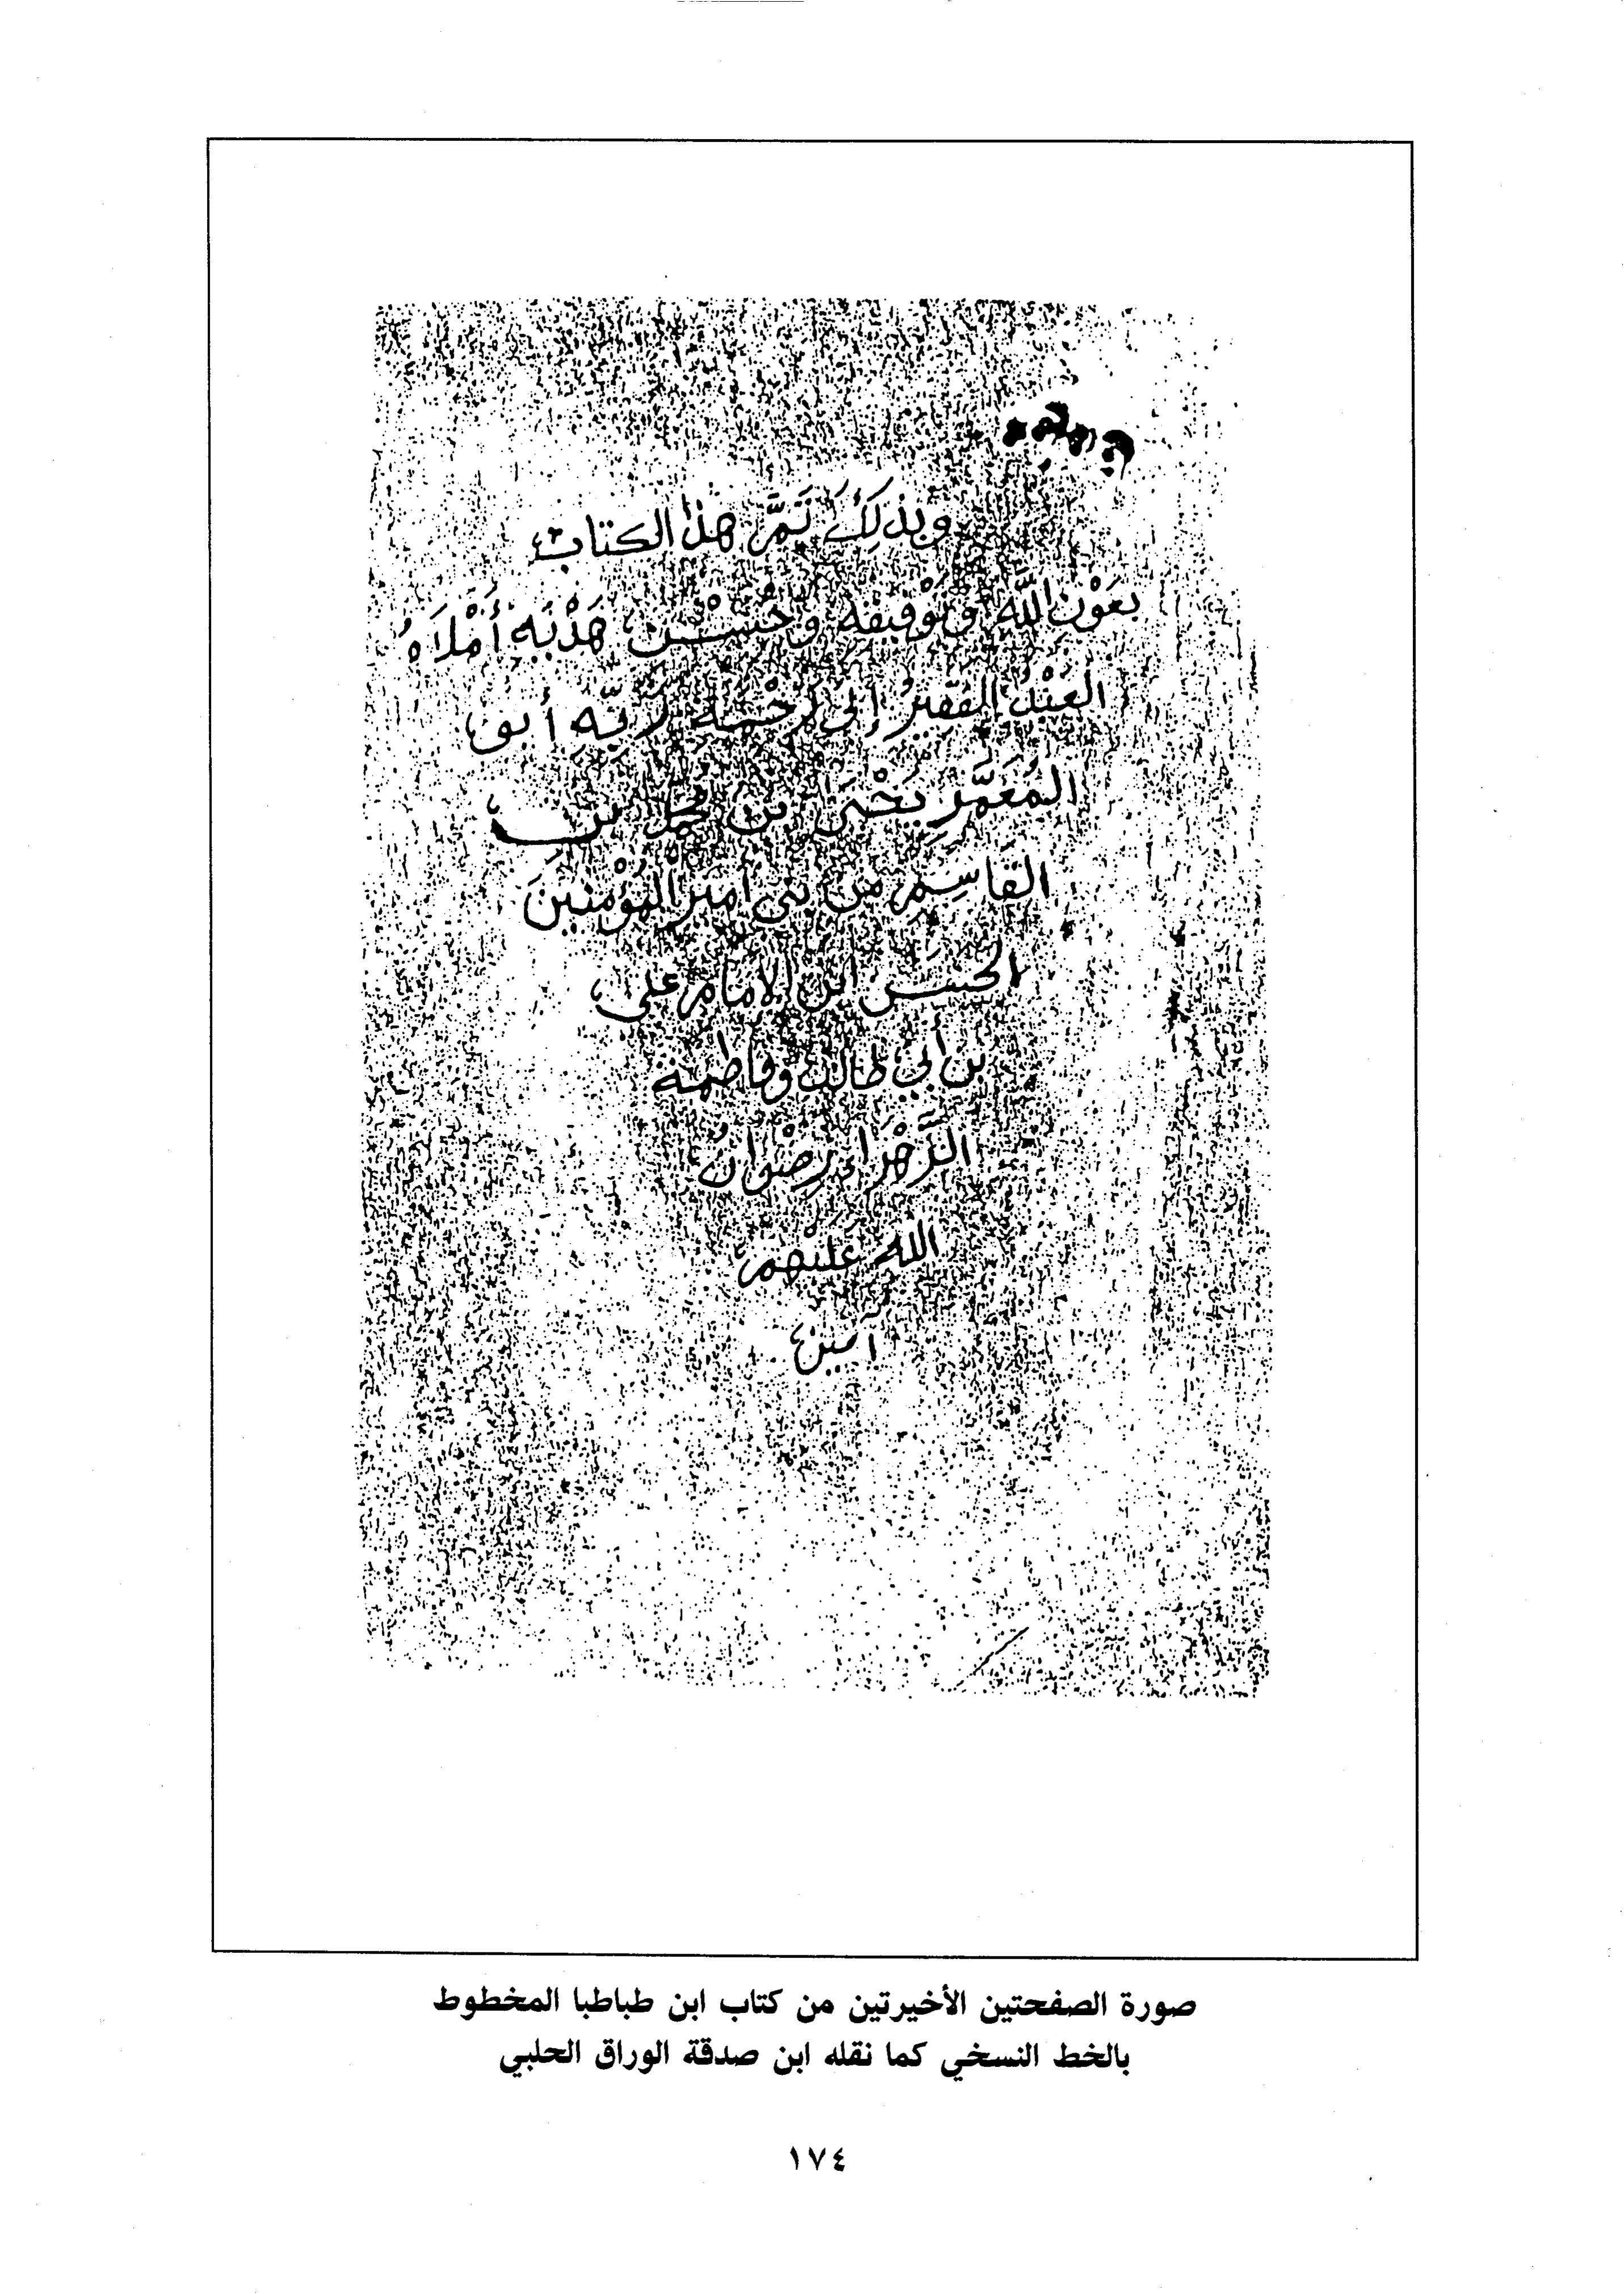 وَبِذَلِكَ تَمَّ هذا الكتابُ
بعَوْنِ اللَّه وتَوْفيقه وحُسْن هَدْيَه أَمْلَاهُ
العَبْدُ الفقيرُ إلى رَحْمَة رَبِّه أبو
المُعَمَّر يَحْيَى بن محمد بن
القَاسِم من بني أمير المُؤْمنينَ
الحسن ابن الإمام علي
بن أبي طالب وفاطمة
الزَّهْراء رضْوانُ
اللَّه عَلَيْهم
آمين
صورة الصفحتين الأخيرتين من كتاب ابن طباطبا المخطوط
بالخط النسخي كما نقله ابن صدقة الوراق الحلبي
١٧٤